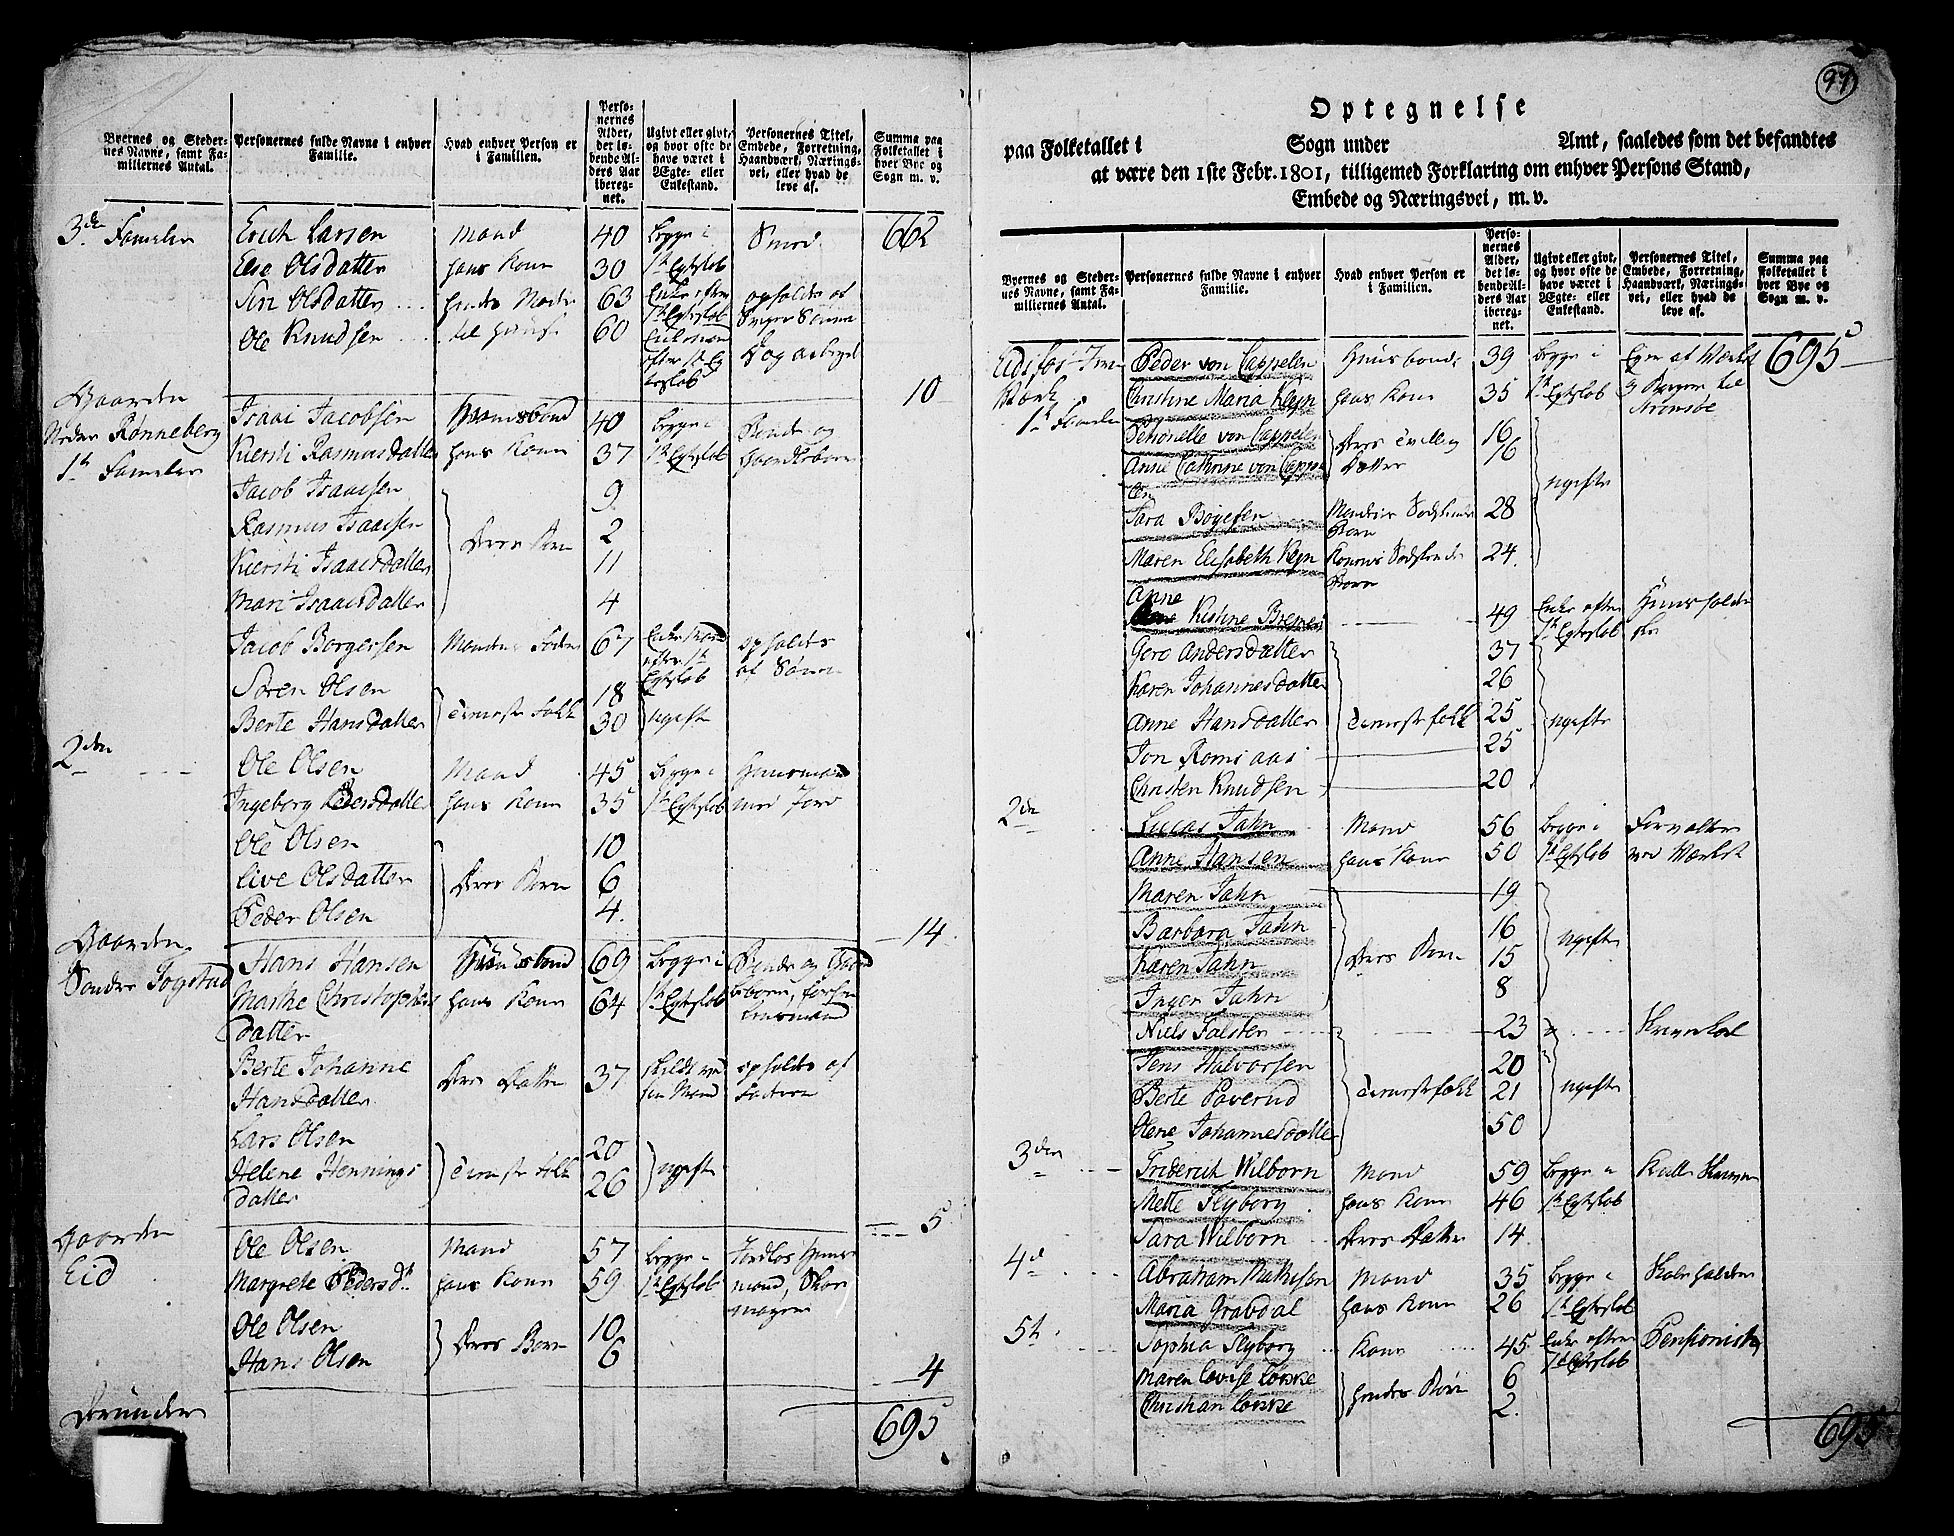 Byernes og Steder-
nes Navne, samt Fa-
miliernes Antal.
Personernes fulde Navne i enhver
Familie.
Hvad enhver Person er
i Familien.
Perso-
nernes
Alder,
det lø-
bende Al-
ders Aar
ibereg-
net.
Ugivt eller givt,
og hvor ofte de
have været i
Ægte- eller
Enkestand.
Personernes Titel,
Embede, Forretning,
Haandværk, Nærings-
vei, eller hvad de
leve af.
Summa paa
Folketallet i
hver Bye og
Sogn m. v.
3de Familie Erich Larsen Mand 40 begge i Smed 662
Else Olsdatter hans Kone 30 1te Egteskab
Siri Olsdatter hendes Moder 63 Enke efter opholdes af
1te Egteskab Sviger Sønnen
Ole Knudsen til Huuse 60 Enkemand
efter 1te Eg
teskab
10
Gaarden
Nedre Rønneberg
1te Familie
Isaac Jacobsen Huusbond 40 begge i Bonde og
Kiersti Rasmusdatter hans Kone 37 1te Egteskab Gaardbeboer
Jacob Isaacsen 9
Rasmus Isaacsen 2
Deres Børn
Kiersti Isaacsdatter 11
Mari Isaacsdatter 4
Jacob Borgersen Mandens Fader 67 Enkemand opholdes
efter 1te af Sønnen
Egteskab
Søren Olsen 18
Tieneste Folk ugifte
Berte Hansdatter 30
2den Ole Olsen Mand 45 begge i Huusmand
Ingeborg Pedersdatter hans Kone 35 1te Egteskab med Jord
Ole Olsen 10
Live Olsdatter Deres Børn 6
Peder Olsen 4
14
Gaarden
Søndre Fogstad
Hans Hansen Huusbond 69 begge i Bonde og Gaard
Marthe Christophers hans Kone 64 1te Egteskab beboer, forhen
datter Lensmand
Berte Johanne Deres Datter 37 skildt ved opholdes af
Hansdatter sin Mand Faderen
Lars Olsen 20
Tieneste Folk ugifte
Helene Hennings 26
datter
5
Gaarden
Eid
Ole Olsen Mand 57 begge i Jordløs Huus
Margrete Pedersdtr hans Kone 59 1te Egteskab mand, Skoe
mager
Ole Olsen 10
Deres Børn
Hans Olsen 6
4
695
97
Optegnelse
paa Folketallet i Sogn under Amt, saaledes som det befandtes
at være den 1ste Febr. 1801, tilligemed Forklaring om enhver Persons Stand,
Embede og Næringsvei, m. v.
Byernes og Steder-
nes Navne, samt Fa-
miliernes Antal.
Personernes fulde Navne i enhver
Familie.
Hvad enhver Person er
i Familien.
Perso-
nernes
Alder,
det lø-
bende Al-
ders Aar
ibereg-
net.
Ugivt eller givt,
og hvor ofte de
have været i
Ægte- eller
Enkestand.
Personernes Titel,
Embede, Forretning,
Haandværk, Nærings-
vei, eller hvad de
leve af.
Summa paa
Folketallet i
hver Bye og
Sogn m. v.
695
Eidsfos Jern
Værk
1te Familie
Peder von Cappelen Huusbonde 39 begge i Eger af Værket
Christine Maria Klejn hans Kone 35 1te Egteskab og Borger til
Strømsøe
Petronelle von Cappelen 16
Deres Tvilling
Døttre
Anne Cathrine von Cappe 16
len
ugifte
Sara Boyesen Mandens Sødskende 28
Børn
Maren Elisabeth Klejn Konens Sødskende 24
Børn
Anne
Kistine Bremer 49 Enke efter Huusholder
1te Egteskab ske
Goro Andersdatter 37
Karen Johannesdatter 26
Anne Hansdatter Tienestefolk 25 ugifte
Jon Romsaas 25
Christen Knudsen 20
2de Lucas Jahn Mand 56 begge i Forvalter
Anne Hansen hans Kone 50 1te Egteskab ved Værket
Maren Jahn 19
Barbara Jahn 16
Deres Børn ugifte
Karen Jahn 15
Inger Jahn 8
Niels Falsten 23 Skriverkarl
Jens Halvorsen 20
Berte Paverud Tienestefolk 21 ugifte
Olene Johannesdatter 50
3den Friderich Wilborn Mand 59 begge i
Mette Flyborg hans Kone 46 1te Egteskab
Sara Wilborn Deres Datter 14
4de Abraham Mathisen Mand 35 begge i Skoleholder
Maria Grabdal hans Kone 26 1te Egteskab
5te Sophia Flyborg Kone 45 Enke efter Pensioniste
1te Egteskab
Maren Lovise 6
hendes Børn
Christian 2
695